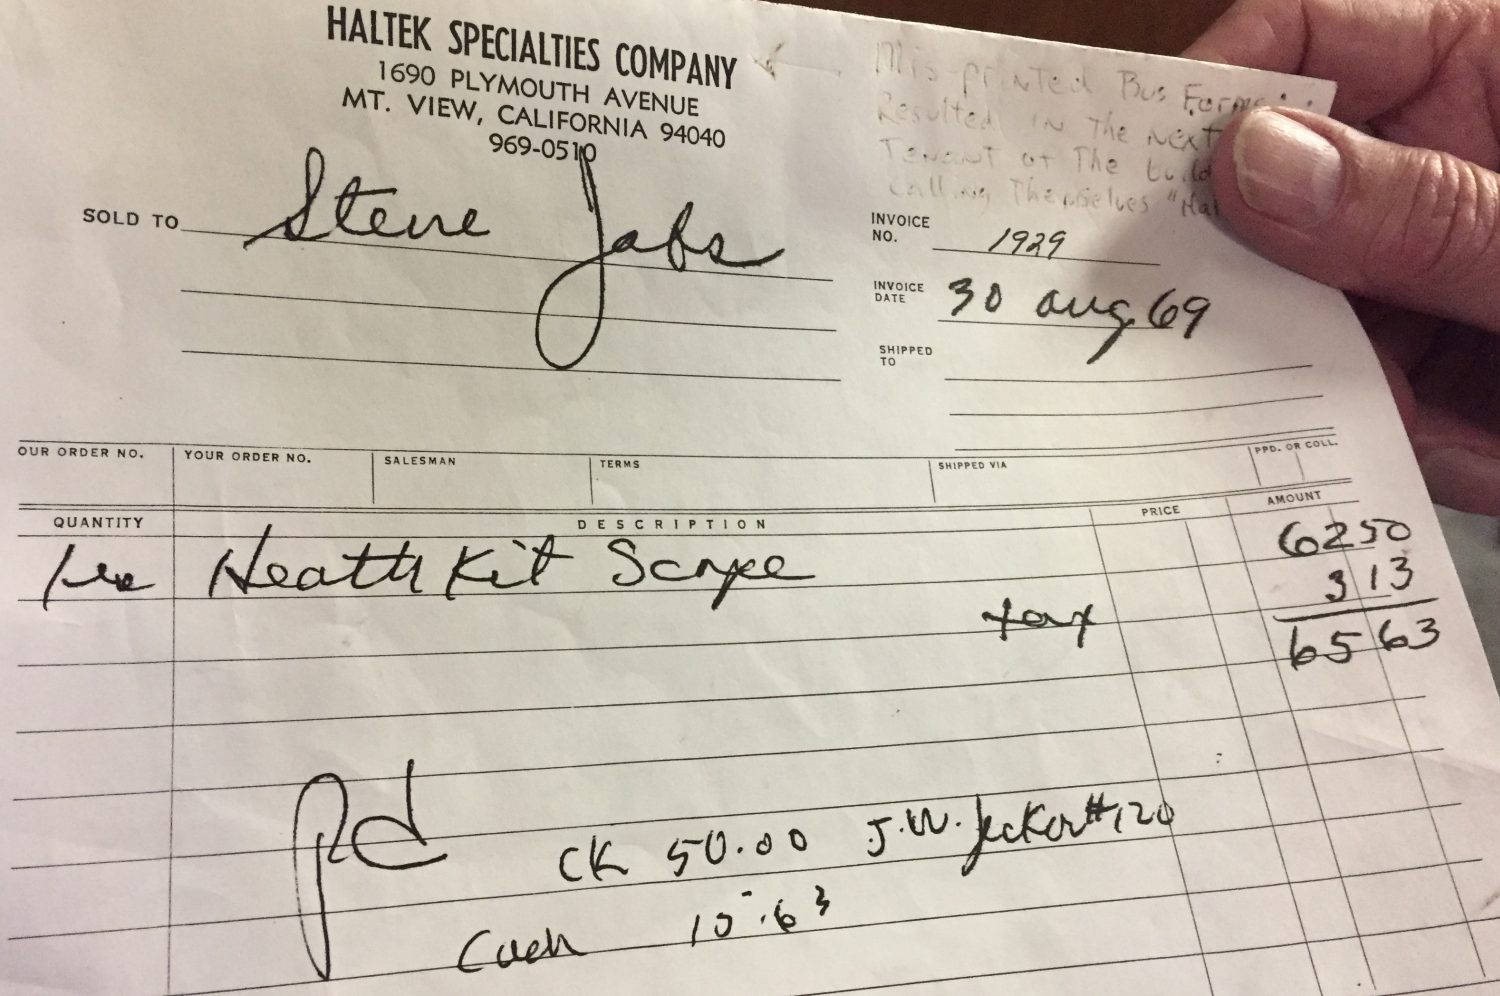 HALTEK SPECIALTIES COMPANY
1690 PLYMOUTH AVENUE
MT. VIEW, CALIFORNIA 94040
969-0510
Mis-printed Bus Forms
Resulted in The Next
Tenant at The build
calling Themselves "Hal
SOLD TO Steve Jobs
INVOICE NO. 1929
INVOICE DATE 30 aug 69
SHIPPED TO
OUR ORDER NO. YOUR ORDER NO. SALESMAN TERMS SHIPPED VIA PPD. OR COLL.
QUANTITY DESCRIPTION PRICE AMOUNT
1 ea Heath Kit Scope 62 50
tax 3 13
65 63
pd
CK 50.00 J.W. #120
Cash 15.63